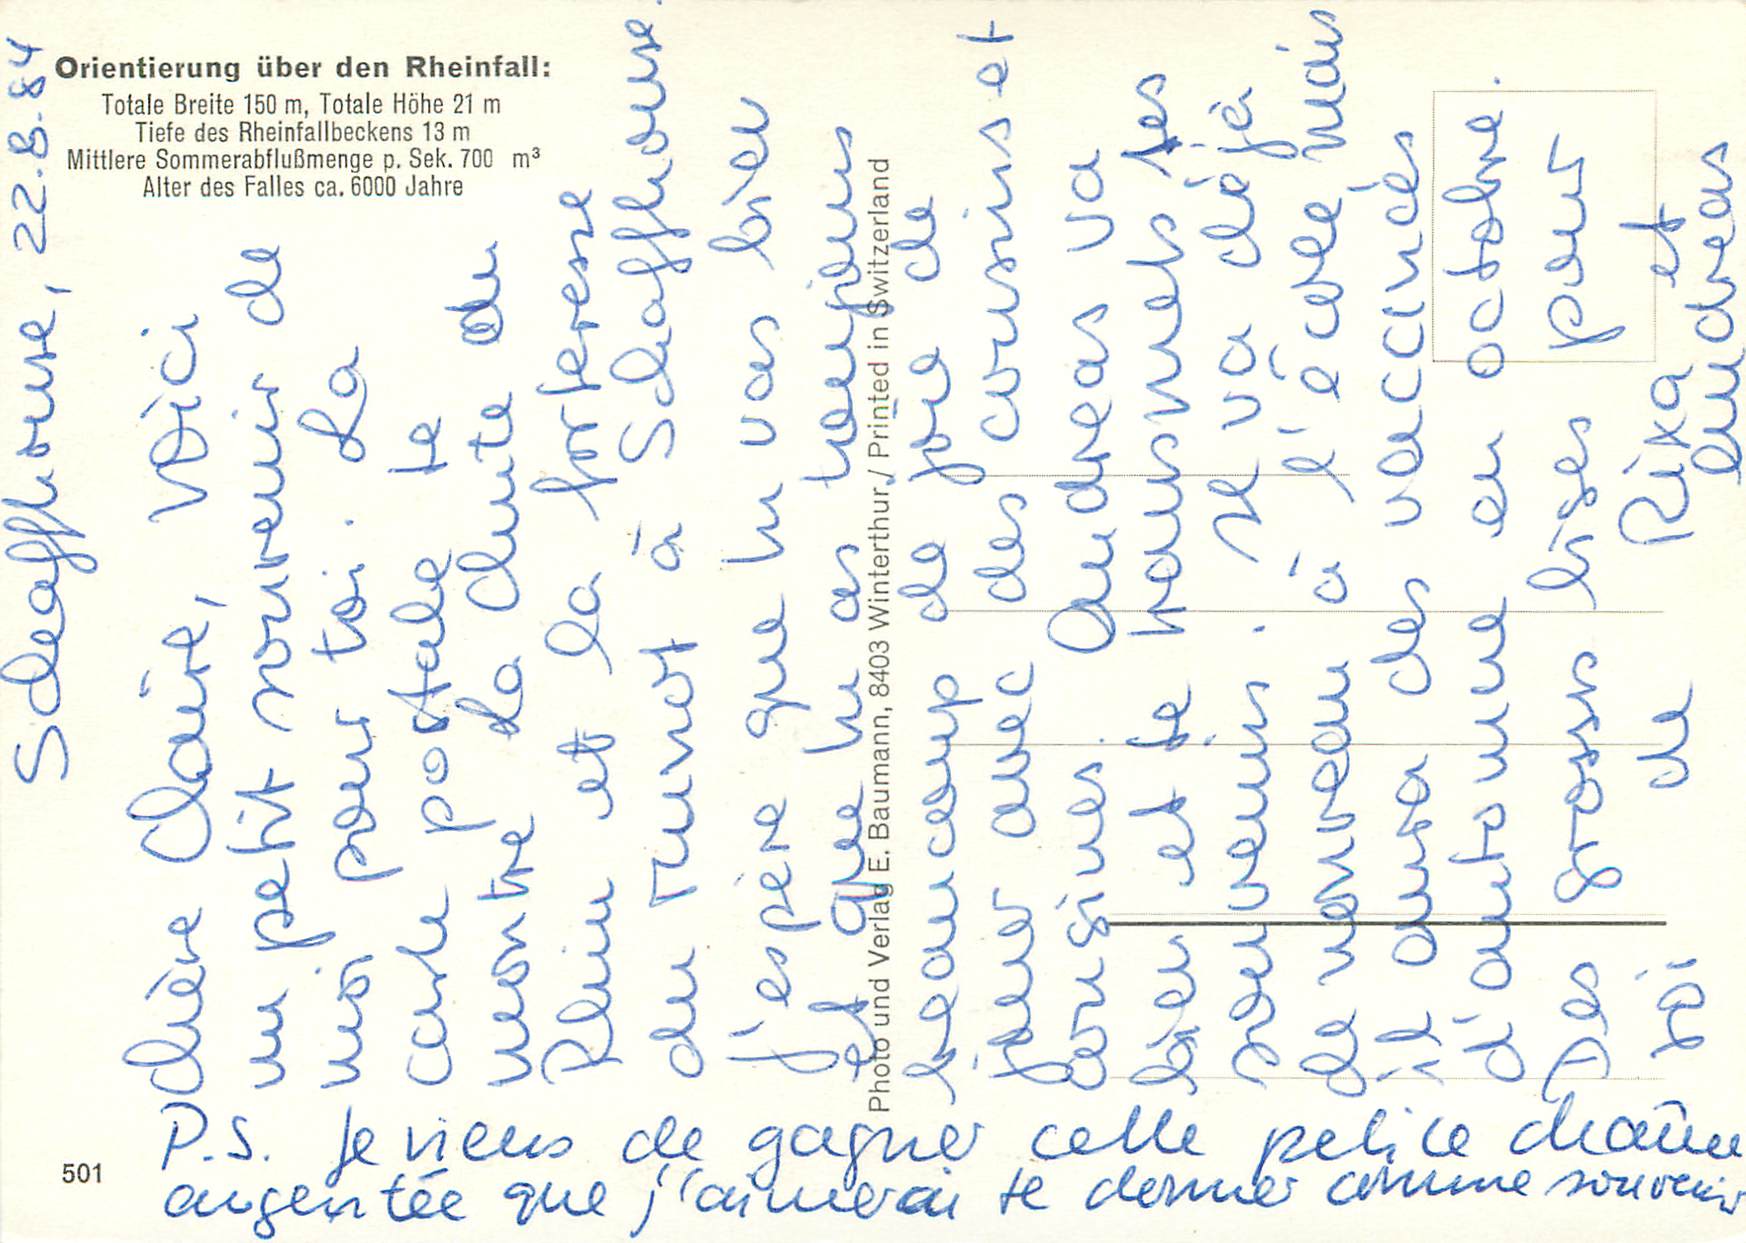 Orientierung über den Rheinfall:
Totale Breite 150 m, Totale Höhe 21 m
Tiefe des Rheinfallbeckens 13 m
Mittlere Sommerabflußmenge p. Sek. 700 m³
Alter des Falles ca. 6000 Jahre
Schaffhouse, 22.8.84
Chère Claire, voici
un petit souvenir de
moi pour toi. La
carte postale te
montre la chute du
Rhin et la forteresse
du Munot à Schaffhouse.
J'espère que tu vas bien
et que tu as toujours
beaucoup de joie de
jouer avec des cousins et
cousines. Andreas va
bien et te transmets ses
souvenirs. Il va déjà
de nouveau à l'école mais
il aura des vacances
d'automne en octobre.
Des grosses bises pour
toi de Rixa et
Andreas
Photo und Verlag E. Baumann, 8403 Winterthur / Printed in Switzerland
P.S. Je viens de gagner cette petite chaîne
argentée que j'aimerai te donner comme souvenir
501